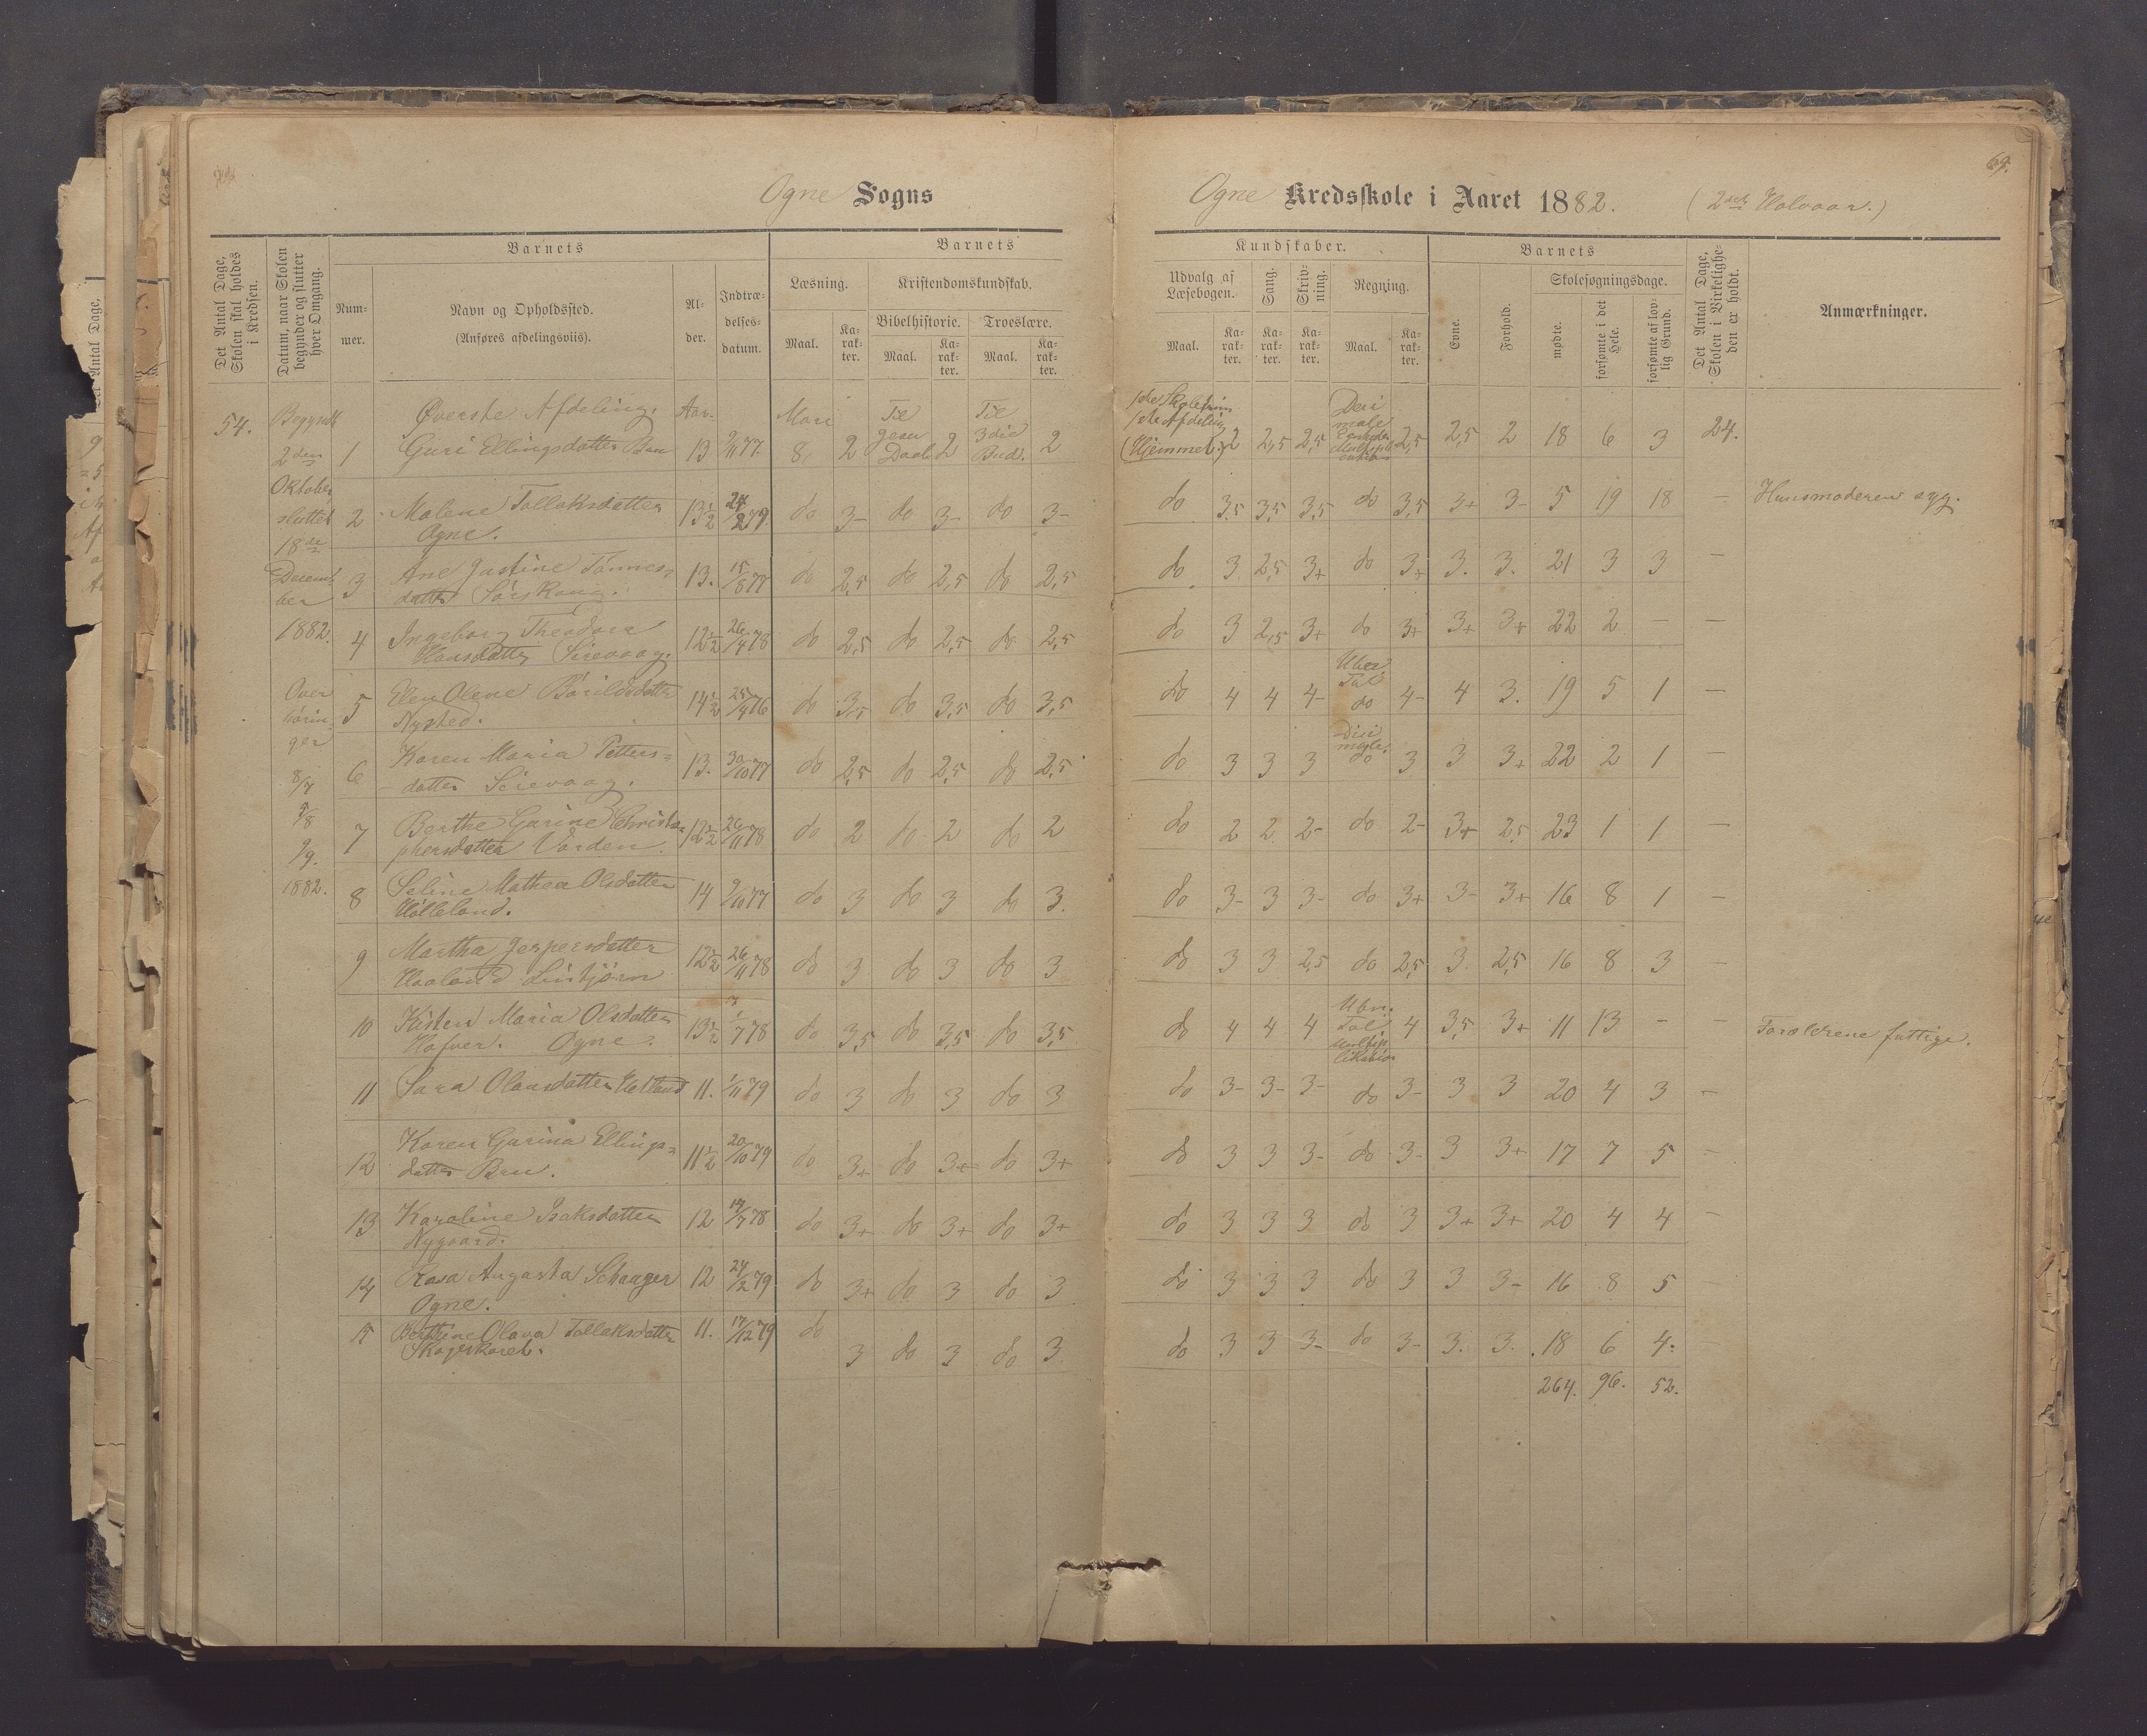 Ogne Sogns
Ogne Kredsskole i Aaret 1882. (2det Halvaar.)
69.
Det Antal Dage, Skolen skal holdes i Kredsen.
Datum, naar Skolen begynder og slutter hver Omgang.
Barnets
Num-
mer.
Navn og Opholdssted.
(Anføres afdelingsviis).
Al-
der.
Indtræ-
delses-
datum.
Barnets
Læsning.
Maal.
Ka-
rak-
ter.
Kristendomskundskab.
Bibelhistorie.
Maal.
Ka-
rak-
ter.
Troeslære.
Maal.
Ka-
rak-
ter.
Kundskaber.
Udvalg af
Læsebogen.
Maal.
Ka-
rak-
ter.
Sang.
Ka-
rak-
ter.
Skriv-
ning.
Ka-
rak-
ter.
Regning.
Maal.
Ka-
rak-
ter.
Barnets
Evne.
Forhold.
Skolesøgningsdage.
mødte.
forsømte i det Hele.
forsømte af lov-
lig Grund.
Det Antal Dage, Skolen i Virkelighe-
den er holdt.
Anmærkninger.
54.
Begyndt
2den
Oktober
sluttet
18de
Decem-
ber
1882.
Over
hørin-
ger
8/7
9/8
9/9.
1882.
Øverste Afdeling. Aar.
1 Guri Ellingsdatter Bru 13 9/11 77. 8, 2 Til Jesu Daab 2 Til 3die Bud. 2 (Hjemmet.) 2 2,5 2,5 2,5 2,5 2 18 6 3 24.
2 Malene Tollaksdatter 13½ 24/2 79. do 3- do 3- do 3- do 3,5 3,5 3,5 do 3,5 3+ 3- 5 19 18 — Huusmoderen syg.
Ogne.
3 Ane Justine Tønnes- 13. 15/8 77 do 2,5 do 2,5 do 2,5 do 3 2,5 3+ do 3+ 3. 3. 21 3 3 —
datter Sørskoug.
4 Ingeborg Theodora 12½ 26/4 78 do 2,5 do 2,5 do 2,5 do 3 2,5 3+ do 3+ 3+ 3+ 22 2 — —
Hansdatter Sirevaag.
5 Elen Olene Bårildsdatter 14½ 25/4 76 do 3,5 do 3,5 do 3,5 do 4 4 4- Uben. Tal do 4- 4 3. 19 5 1 —
Nysted.
6 Karen Maria Petters- 13. 30/10 77 do 2,5 do 2,5 do 2,5 do 3 3 3 do 3 3 3+ 22 2 1 —
datter Sirevaag.
7 Berthe Gurine Christo- 12½ 26/11 78 do 2 do 2 do 2 do 2 2 2- do 2- 3+ 2,5 23 1 1 —
phersdatter Varden.
8 Seline Mathea Olsdatter 14 9/10 77 do 3 do 3 do 3. do 3- 3 3- do 3+ 3- 3+ 16 8 1 —
Hølleland.
9 Martha Jespersdatter 12½ 26/11 78 do 3 do 3 do 3 do 3 3 2,5 do 2,5 3 2,5 16 8 3 —
Haaland
10 Kisten Maria Olsdatter 13½ 1/7 78 do 3,5 do 3,5 do 3,5 do 4 4 4 Uben. Tal Multip- likation 4 3,5 3+ 11 13 - — Forældrene fattige.
Ogne.
11 Sara Olausdatter Hetland 11. 1/11 79 do 3 do 3 do 3 do 3- 3- 3- do 3- 3 3 20 4 3 —
12 Karen Gurina Ellings- 11½ 20/10 79 do 3+ do 3+ do 3+ do 3 3 3- do 3- 3 3+ 17 7 5 —
datter Bru.
13 Karoline Isaksdatter 12 14/7 78 do 3+ do 3+ do 3+ do 3 3 3 do 3 3+ 3+ 20 4 4 —
Nygaard.
14 Rosa Augusta Schaager 12 24/2 79. do 3+ do 3 do 3 do 3 3 3 do 3 3 3- 16 8 5 —
Ogne.
15 Berthine Olava Tollaksdatter 11. 17/12 79 do 3 do 3 do 3 do 3 3 3- do 3- 3. 3. 18 6 4.
Skogeskaret.
264. 96. 52.